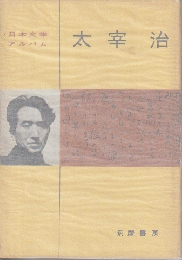 日本文学
アルバム
太宰治
筑摩書房